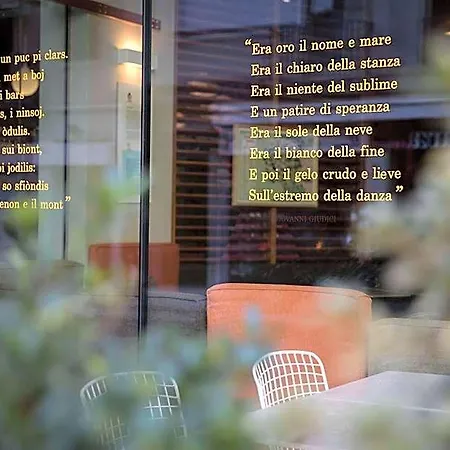 un puc pi clars.
met a boj
i bars
s, i ninsoj.
òdulis.
sui biont,
oi jodilis:
so sfiòndis
enon e il mont”
“Era oro il nome e mare
Era il chiaro della stanza
Era il niente del sublime
E un patire di speranza
Era il sole della neve
Era il bianco della fine
E poi il gelo crudo e lieve
Sull'estremo della danza”
OVANNI GIUDICI